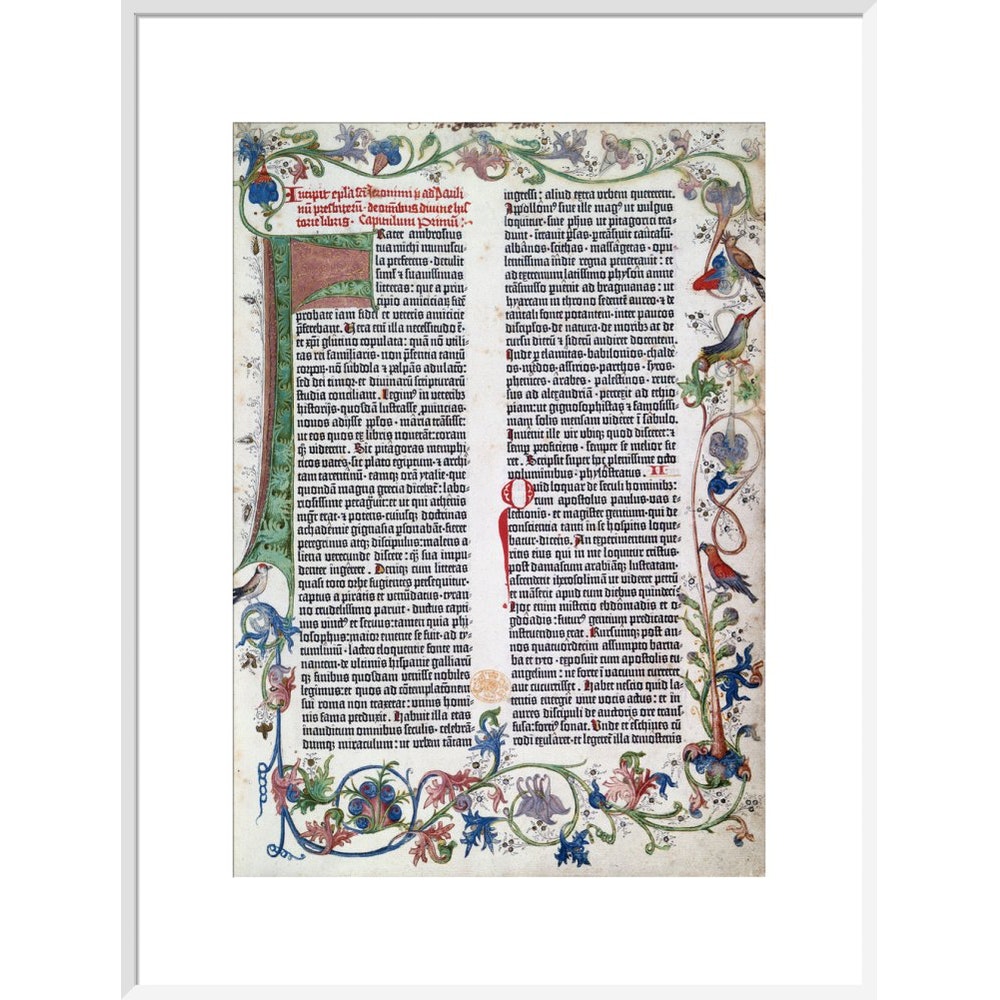 Incipit epl̃a sc̃i Jeronimi p̃ ad Pauli
nũ presbiterũ · de omnibus divine his
torie libris · Capitulum Primũ :·
Frater ambrosius
tua michi munuscu
la perferens · detulit
sim⁊ ⁊ suavissimas
litteras : que a prin
cipio amicitiaꝝ fidẽ
probate iam fidei et veteris amicicie
p̃ferebant. Vera em̃ illa necessitudo ẽ·
et xp̃i glutino copulata : quã nõ utili-
tas rei familiaris · nõ p̃sentia tantũ
corpoꝝ · nõ subdola ⁊ palpãs adulacõ ·
sed dei timor · et divinaꝝ scripturarũ
studia conciliant. Legim⁹ in veteribus
historijs · quosdam lustrasse ꝓvincias ·
novos adysse pp̃los · maria trãsisse ·
ut eos quos ex libris noverãt : coram
qꝫ viderent. Sic pitagoras memphi-
ticos vates · sic plato egiptum ⁊ archi-
tam tarentinũ · eamqꝫ orã ytalie · que
quondam magna grecia dicebat̃ : labo-
riosissime peragravit : et ut qui athenis
mgr̃ erat · ⁊ potens · cuiusqꝫ doctrinas
achademie gignasia p̃sonabãt · fieret
peregrinus atqꝫ discipulus : malens a-
liena verecunde discere : qꝫ sua impu-
denter ingerere. Deniqꝫ cum litteras
quasi toto orbe fugientes persequitur ·
captus a piratis et venũdatus · tyran-
no crudelissimo paruit · ductus capti-
vus vinct⁹ et servus : tamen quia phi-
losophus : maior emente se fuit · ad ty-
tumlivium · lacteo eloquentie fonte ma-
nantem · de ultimis hispanie galliarũ
qꝫ finibus quosdam venisse nobiles
legimus : et quos ad cõtemplacõnem
sui roma non traxerat : unius homi-
nis fama perduxit. Habuit illa etas
inauditum omnibus seculis · celebrã-
dumqꝫ miraculum : ut urbem tãtam
ingressi : aliud extra urbem quererent.
Appollonj⁹ sive ille mag⁹ ut vulgus
loquitur · sive ph̃us ut pitagorici tra-
dunt · intravit p̃sas · p̃transivit caucasũ ·
albãnos · scithas · massagetas · opu-
lentissima indie regna penetravit : et
ad extremum latissimo physon amne
trãsmisso p̃venit ad bragmanas : ut
hyarcam in throno sedentẽ aureo · ⁊ de
tantali fonte potantem · inter paucos
discip̃los · de natura · de moribus ac de
cursu dierũ ⁊ siderũ audiret docentem.
Inde p̃ elamitas · babilonios · chalde-
os · medos · assirios · parthos · syros ·
phenices · arabes · palestinos · rever-
sus ad alexandriã · perrexit ad ethio-
piam : ut gignosophistas ⁊ famosissi-
mam solis mensam videret ĩ sabulo.
Invenit ille vir ubiqꝫ quod disceret : ⁊
semꝑ proficiens · semper se melior fie-
ret. Scripsit super hoc plenissime octo
voluminibus · phylostratus. II
Quid loquar de seculi hominibꝫ :
cum apostolus paulus · vas e-
lectionis · et magister gentium · qui de
conscientia tanti in se hospitis loque-
batur · dicens. An experimentum que-
ritis eius qui in me loquitur cristus ·
post damascum arabiãqꝫ lustratam ·
ascenderit iherosolimã ut videret petrũ
et mãserit apud eum diebus quindeci.
Hoc enim misterio ebdõmadis et o-
gdoadis : futur⁹ gentium predicator
instruendus erat. Rursumqꝫ post an-
nos quatuordecim assumpto barna-
ba et tyto · exposuit cum apostolis eu-
angelium : ne forte ĩ vacuum curreret
aut cucurrisset. Habet nescio quid la-
tentis energie vive vocis actus : et in
aures discipuli de auctoris ore trans-
fusa : forti⁹ sonat. Unde et eschines cũ
rodi exularet · et legeret illa demostenis